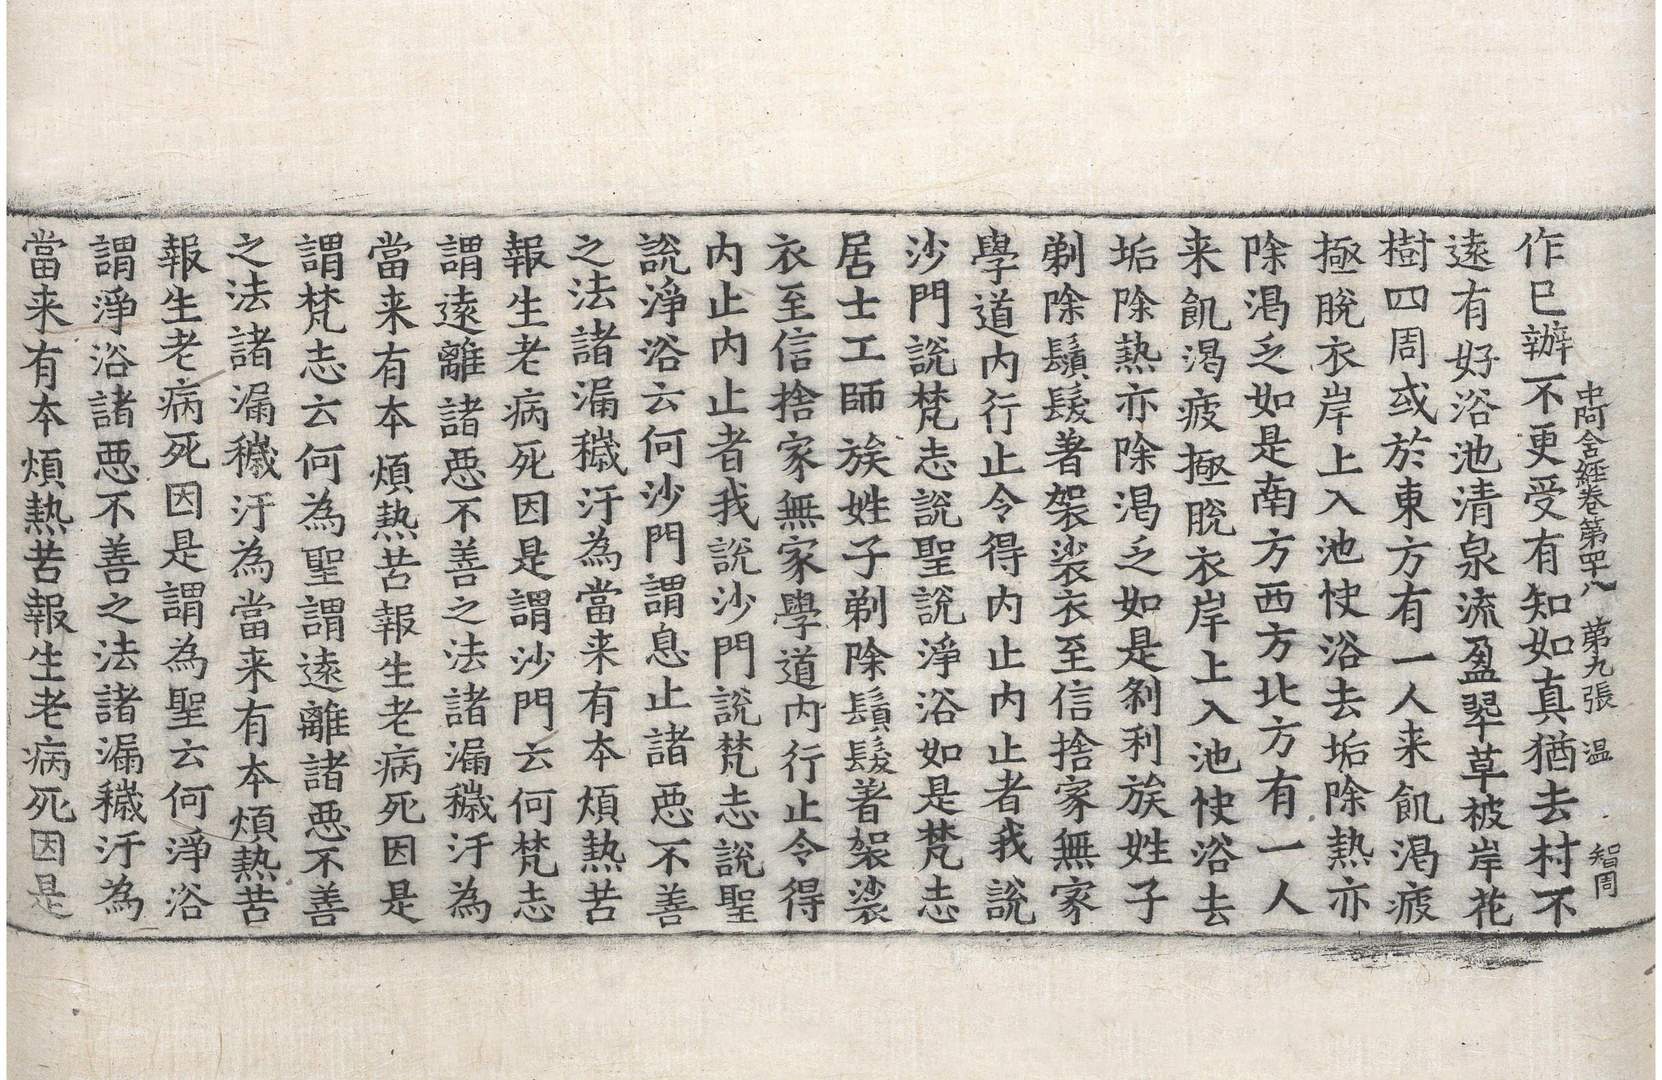 中阿含經卷第四十八　第九張　温　智周
作已辦不更受有知如真猶去村不
遠有好浴池清泉流盈翠草被岸花
樹四周或於東方有一人来飢渴疲
極脫衣岸上入池快浴去垢除熱亦
除渴乏如是南方西方北方有一人
来飢渴疲極脫衣岸上入池快浴去
垢除熱亦除渴乏如是剎利族姓子
剃除鬚髮著袈裟衣至信捨家無家
學道内行止令得内止内止者我說
沙門說梵志說聖說淨浴如是梵志
居士工師族姓子剃除鬚髮著袈裟
衣至信捨家無家學道内行止令得
内止内止者我說沙門說梵志說聖
說淨浴云何沙門謂息止諸惡不善
之法諸漏穢汙為當来有本煩熱苦
報生老病死因是謂沙門云何梵志
謂遠離諸惡不善之法諸漏穢汙為
當来有本煩熱苦報生老病死因是
謂梵志云何為聖謂遠離諸惡不善
之法諸漏穢汙為當来有本煩熱苦
報生老病死因是謂為聖云何淨浴
謂淨浴諸惡不善之法諸漏穢汙為
當来有本煩熱苦報生老病死因是